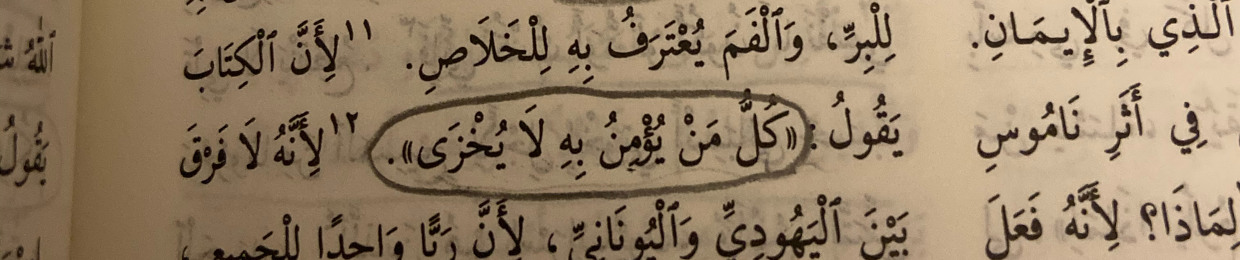 ٱلَّذِي بِٱلْإِيمَانِ.
فِي أَثَرِ نَامُوسِ
لِمَاذَا؟ لِأَنَّهُ فَعَلَ
لِلْبِرِّ، وَٱلْفَمَ يُعْتَرَفُ بِهِ لِلْخَلَاصِ. ١١لِأَنَّ ٱلْكِتَابَ
يَقُولُ: «كُلُّ مَنْ يُؤْمِنُ بِهِ لَا يُخْزَى». ١٢لِأَنَّهُ لَا فَرْقَ
بَيْنَ ٱلْيَهُودِيِّ وَٱلْيُونَانِيِّ، لِأَنَّ رَبًّا وَاحِدًا لِلْجَمِيعِ،
ٱللهُ
يَقُولُ